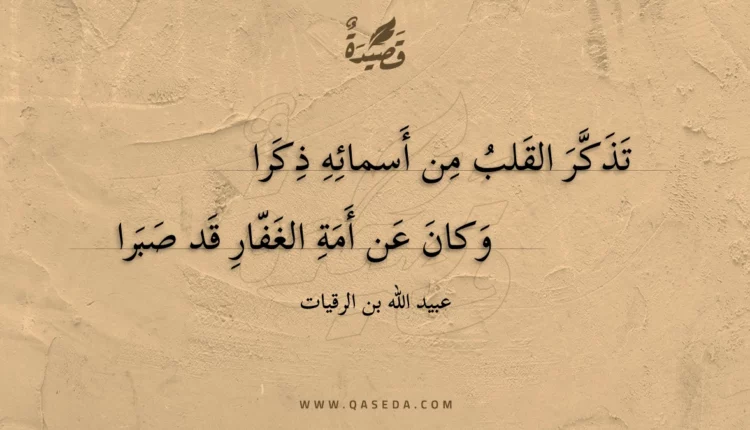 قَصِيْدَةٌ
تَذَكَّرَ القَلبُ مِن أَسمائِهِ ذِكَرا
وَكانَ عَن أَمَةِ الغَفّارِ قَد صَبَرا
عبيد الله بن الرقيات
WWW.QASEDA.COM